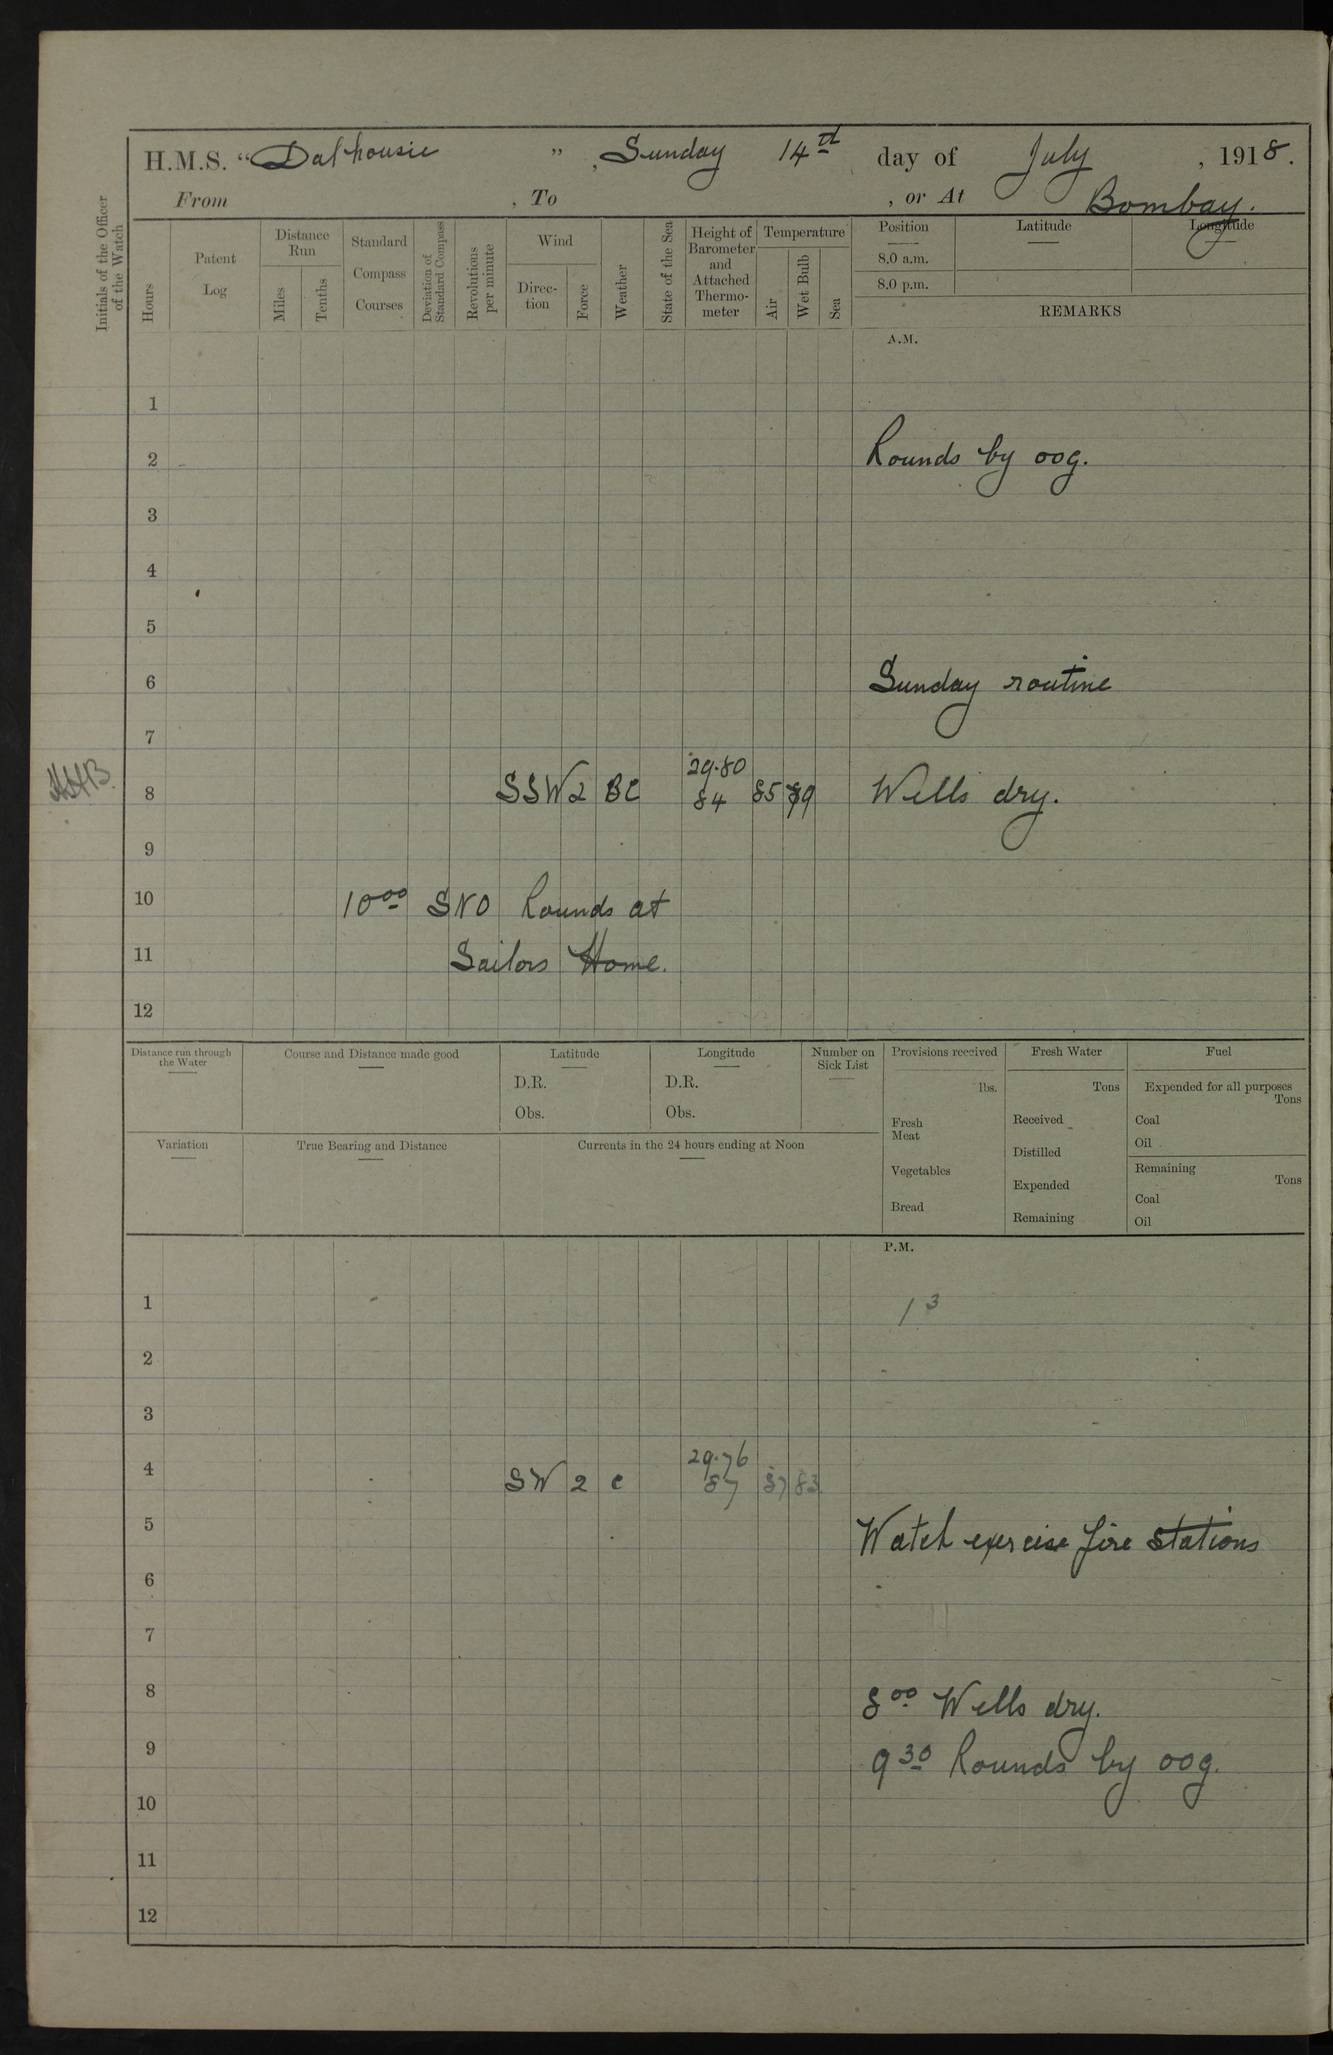 H.M.S. "Dalhousie", Sunday 14th day of July, 1918.
From , To , or At Bombay.
Initials of the Officer of the Watch
Hours
Patent Log
Distance Run
Miles
Tenths
Standard Compass Courses
Deviation of Standard Compass
Revolutions per minute
Wind
Direction
Force
Weather
State of the Sea
Height of Barometer and Attached Thermometer
Temperature
Air
Wet Bulb
Sea
Position
Latitude
Longitude
8.0 a.m.
8.0 p.m.
REMARKS
A.M.
1
2 Rounds by oog.
3
4
5
6 Sunday routine
7
29.80
8 SSW 2 BC 84 85 79 Wells dry.
9
10 10.00 SNO Rounds at
11 Sailors Home.
12
Distance run through the Water
Course and Distance made good
Latitude
D.R.
Obs.
Longitude
D.R.
Obs.
Number on Sick List
Provisions received
lbs.
Fresh Meat
Vegetables
Bread
Fresh Water
Tons
Received
Distilled
Expended
Remaining
Fuel
Expended for all purposes
Tons
Coal
Oil
Remaining
Tons
Coal
Oil
Variation
True Bearing and Distance
Currents in the 24 hours ending at Noon
P.M.
1 1 3
2
3
29.76
4 SW 2 c 87 87 83
5 Watch exercise fire stations
6
7
8 8.00 Wells dry.
9 9.30 Rounds by oog.
10
11
12